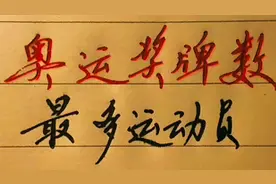 奥运奖牌数
最多运动员